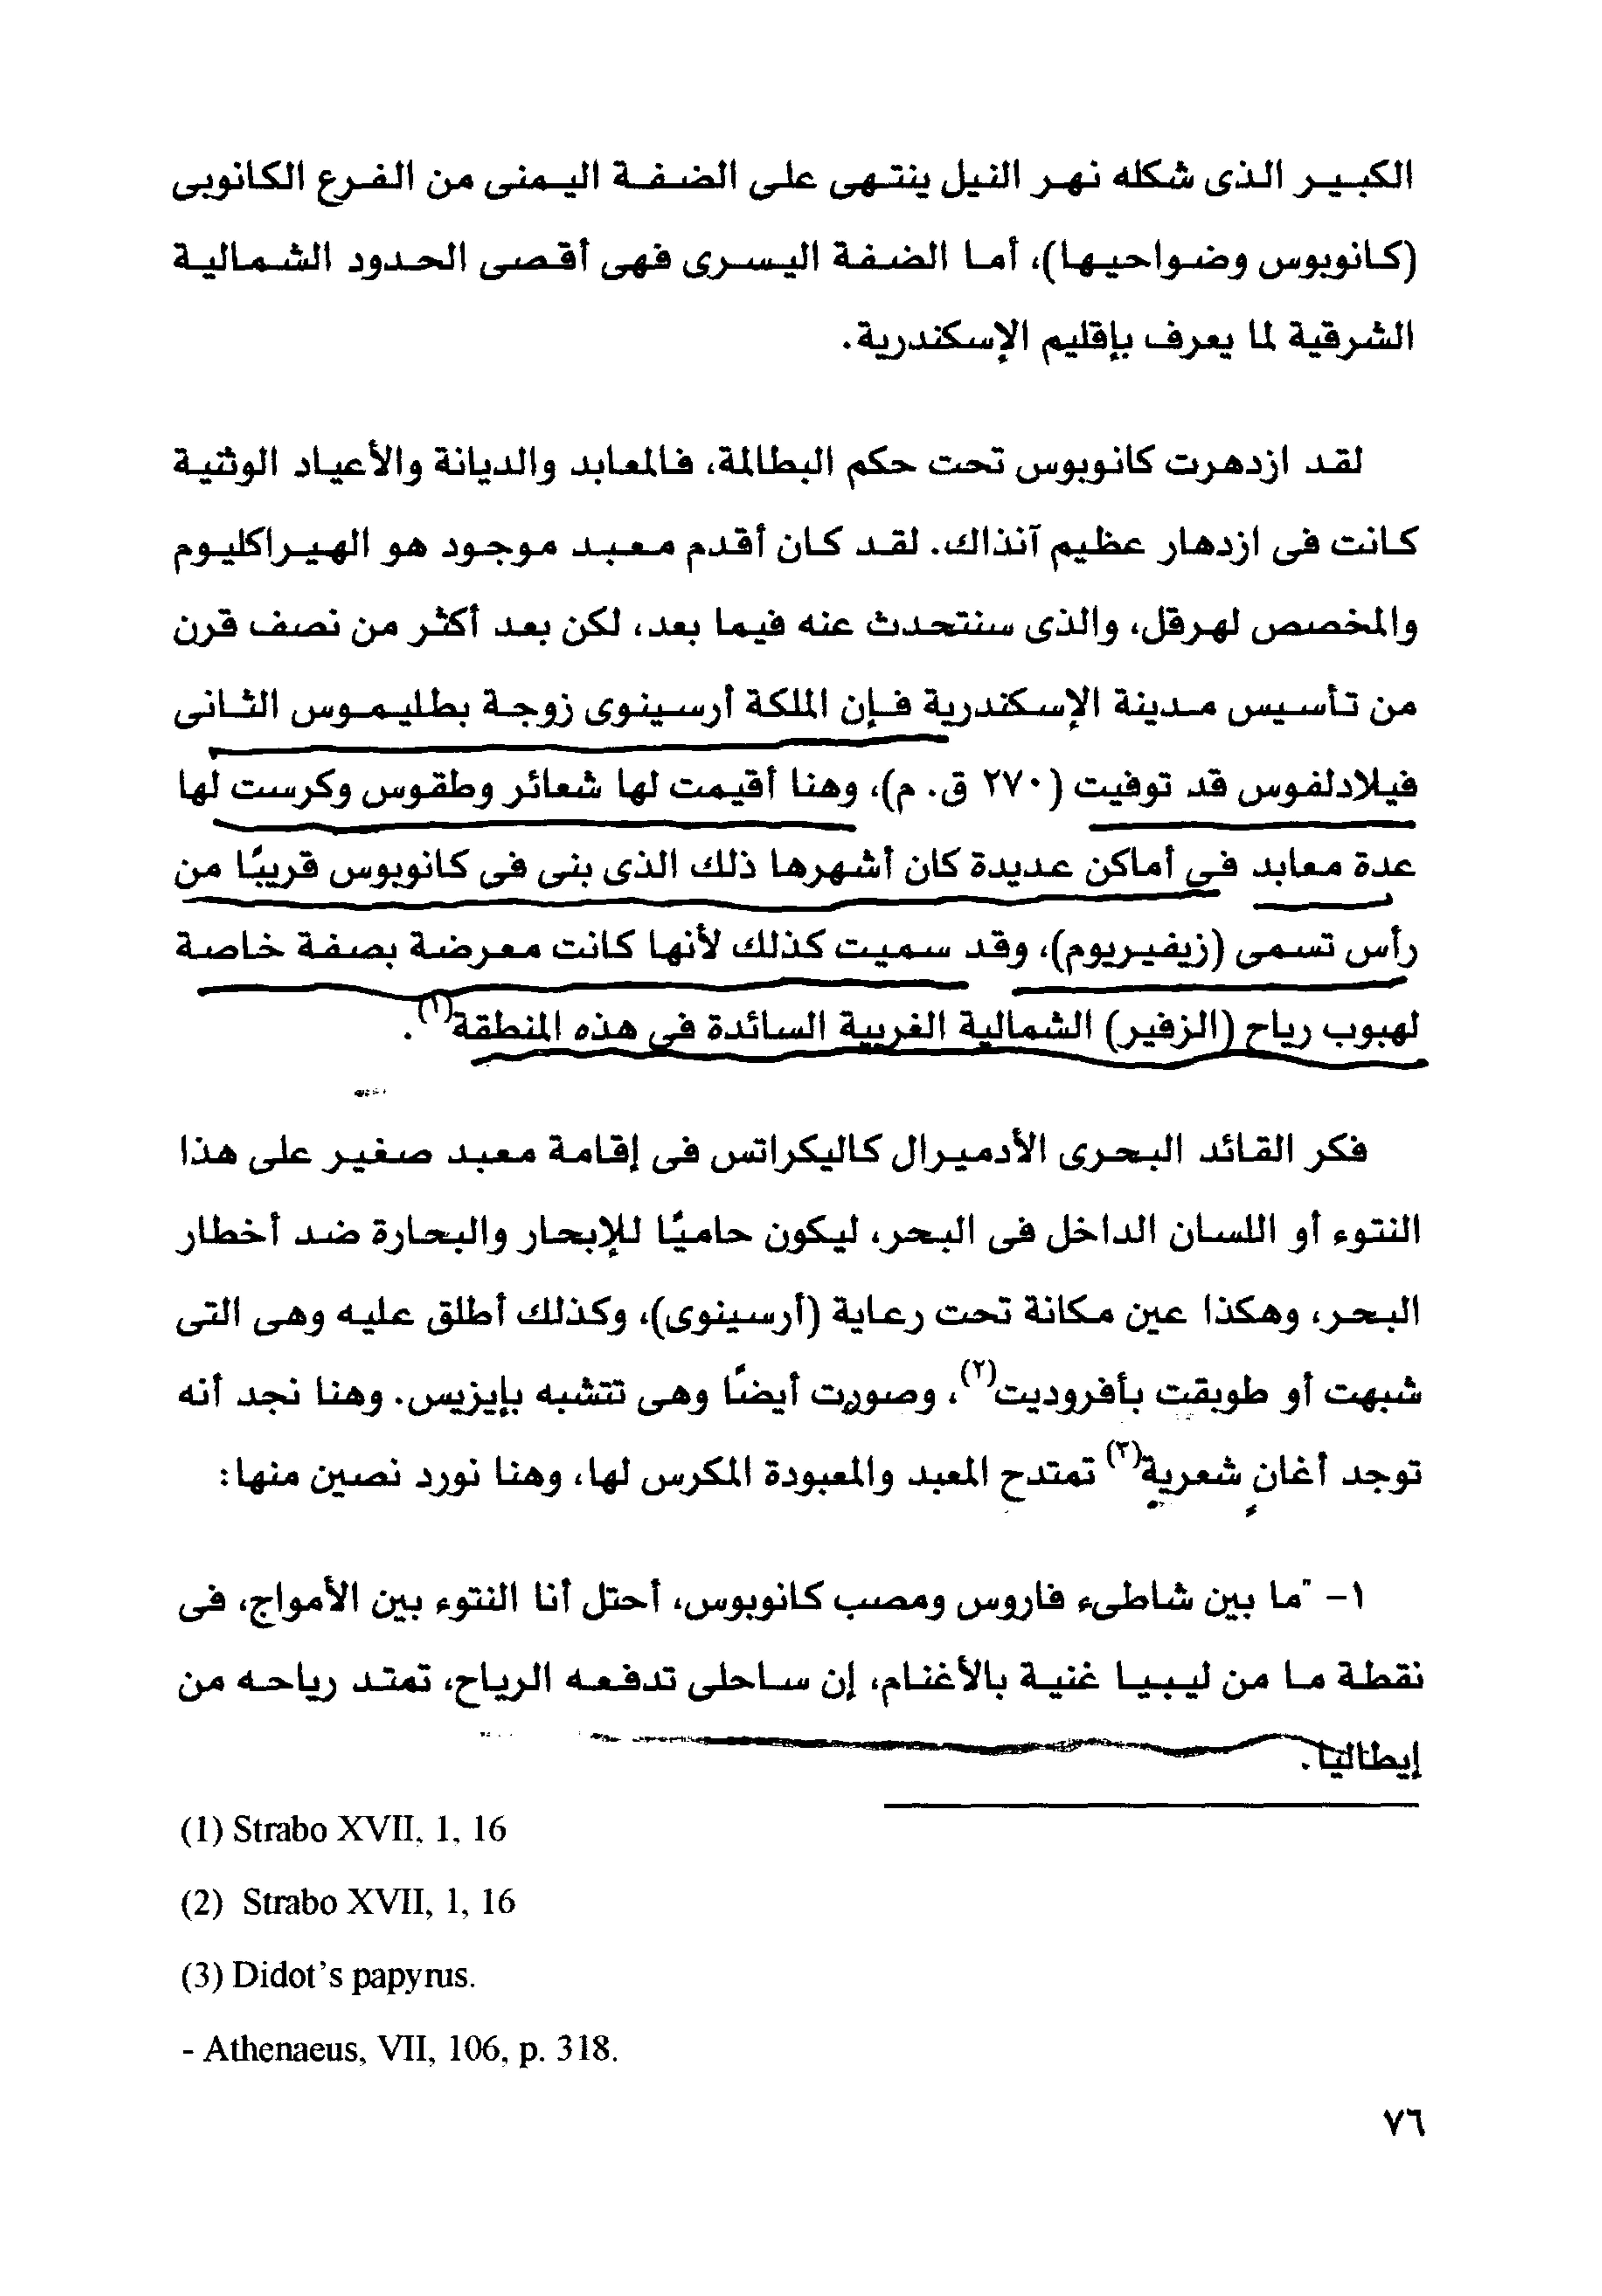 الكبير الذى شكله نهر النيل ينتهى على الضفة اليمنى من الفرع الكانوبى
(كانوبوس وضواحيها)، أما الضفة اليسرى فهى أقصى الحدود الشمالية
الشرقية لما يعرف بإقليم الإسكندرية.
لقد ازدهرت كانوبوس تحت حكم البطالمة، فالمعابد والديانة والأعياد الوثنية
كانت فى ازدهار عظيم آنذاك. لقد كان أقدم معبد موجود هو الهيراكليوم
والمخصص لهرقل، والذى سنتحدث عنه فيما بعد، لكن بعد أكثر من نصف قرن
من تأسيس مدينة الإسكندرية فإن الملكة أرسينوى زوجة بطليموس الثانى
فيلادلفوس قد توفيت (٢٧٠ ق. م)، وهنا أقيمت لها شعائر وطقوس وكرست لها
عدة معابد فى أماكن عديدة كان أشهرها ذلك الذى بنى فى كانوبوس قريبًا من
رأس تسمى (زيفيريوم)، وقد سميت كذلك لأنها كانت معرضة بصفة خاصة
لهبوب رياح (الزفير) الشمالية الغربية السائدة فى هذه المنطقة(١).
فكر القائد البحرى الأدميرال كاليكراتس فى إقامة معبد صغير على هذا
النتوء أو اللسان الداخل فى البحر، ليكون حاميًا للإبحار والبحارة ضد أخطار
البحر، وهكذا عين مكانة تحت رعاية (أرسينوى)، وكذلك أطلق عليه وهى التى
شبهت أو طوبقت بأفروديت(٢)، وصورت أيضًا وهى تتشبه بإيزيس. وهنا نجد أنه
توجد أغانٍ شعرية(٣) تمتدح المعبد والمعبودة المكرس لها، وهنا نورد نصين منها:
١- "ما بين شاطىء فاروس ومصب كانوبوس، أحتل أنا النتوء بين الأمواج، فى
نقطة ما من ليبيا غنية بالأغنام، إن ساحلى تدفعه الرياح، تمتد رياحه من
إيطاليا.
(1) Strabo XVII, 1, 16
(2) Strabo XVII, 1, 16
(3) Didot's papyrus.
- Athenaeus, VII, 106, p. 318.
٧٦